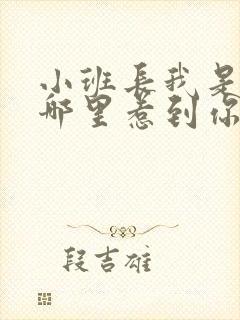 小班长我是
哪里惹到你
段吉雄